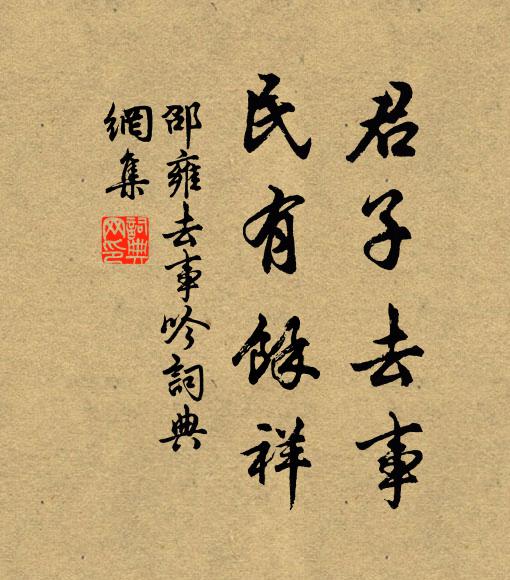 君子去事
民有餘祥
邵雍去事吟詞典
網集
詞典網印